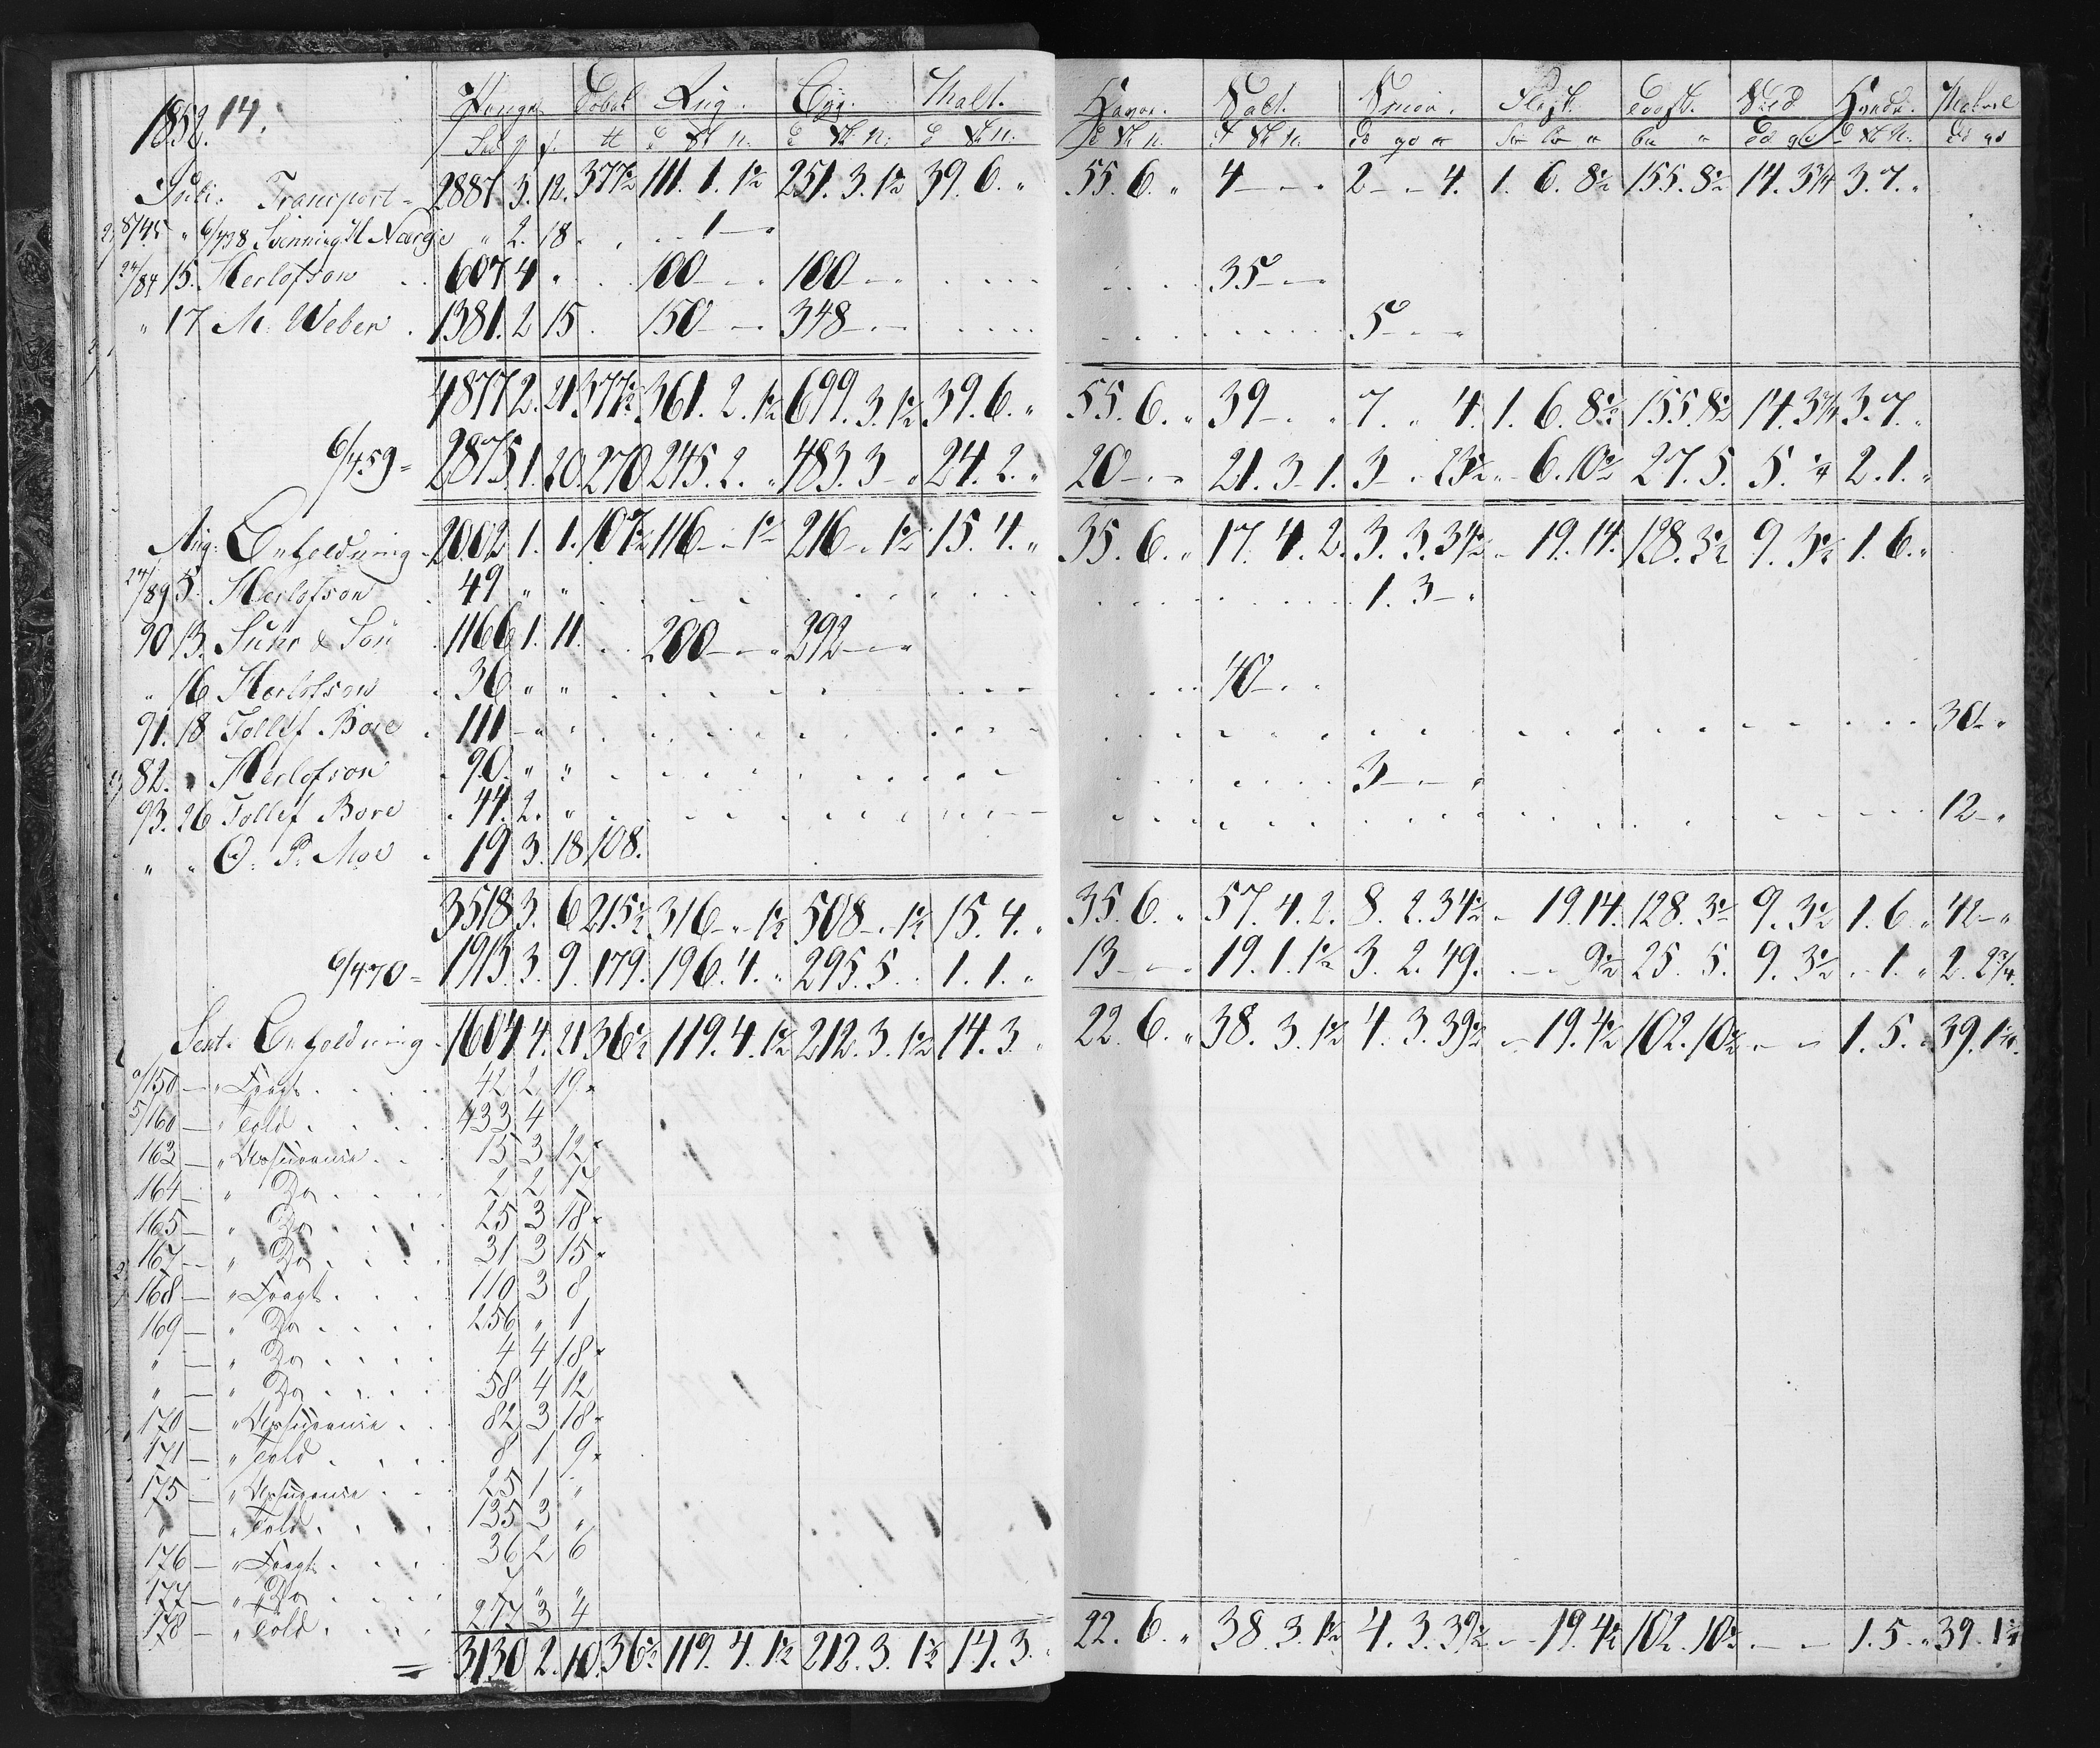 1852. 14.
Penge Tobak Rug. Byg. Malt. Havre. Salt. Smør. Sild Hamp.
Juli. Transport 2887. 3. 12. 377½ 111. 1. 1½ 251. 3. 1½ 39. 6. „ 55. 6. „ 4 - - 2 - - 4. 1. 6. 8½ 155. 8½ 14. 3¼ 3. 7. „
8/45 „ 6/438 Svenning H Nærgie „ 2. 18 . . 1 -
24/84 15. Herlofson 607 4 „ 100 - - 100 - - 35 - -
„ 17 M. Weber 1381. 2 15 150 - - 348 - - 5 - -
4877 2. 21 377½ 361. 2. 1½ 699. 3. 1½ 39. 6. „ 55. 6. „ 39 - . 7. „ 4. 1. 6. 8½ 155. 8½ 14. 3¼ 3. 7. „
6/459 = 2875. 1. 20. 270 245. 2. „ 483. 3 - „ 24. 2. „ 20 - - 21. 3. 1. 3 - . 23½ - 6. 10½ 27. 5. 5. ¼ 2. 1. „
Aug: Beholdning 2002 1. 1. 107½ 116 - - 1½ 216 - . 1½ 15. 4. „ 35. 6. „ 17. 4. 2. 3. 3. 31½ - 19. 14. 128. 3½ 9. 3½ 1. 6. „
24/89 5. Herlofson 49 „ „ 1. 3 - „
90 13. Suhr & Søn 1166 1. 11. 200 - - 292 - -
„ 16 Herlofson 36 „ „ 40 - -
91. 18 Tollef Bore 111 - „ 30 - „
82. „ Herlofson 90. „ „ 3 - - „
93. 26 Tollef Bore 44. 2. „ 12 - „
„ „ O. P. Moe 19 3. 18 108.
3518 3. 6 215½ 316 - „ 1½ 508 - . 1½ 15. 4. „ 35. 6. „ 57. 4. 2. 8. 2. 34½ - 19. 14. 128. 3½ 9. 3½ 1. 6 „ 42 - „
6/470 = 1913. 3. 9. 179. 196. 4. „ 295. 5. . 1. 1. „ 13 - - 19. 1. 1½ 3. 2. 49. - - 9½ 25. 5. 9. 3½ - 1. „ 2. 2¾.
Sept. Beholdning 1604 4. 21 36½ 119. 4. 1½ 212. 3. 1½ 14. 3 „ 22. 6. „ 38. 3. 1½ 4. 3. 39½ - 19. 4½ 102. 10½ - - 1. 5. „ 39. 1¼.
150 — „ Fragt 42 2 19
5/160 — „ Told 433 4 „
163 — „ Assurance 15 3 12
164 — „ Do 2 2 17
165 — „ Do 25 3 18
167 — „ Do 31 3 15
168 — „ Fragt 110 3 8
169 — „ Do 256 „ 1
„ — „ Do 4 4 18
„ — „ Do 58 4 12
170 — „ Assurance 82 3 18
171 — „ Told 8 1 9
175 — „ Assurance 25 1 „
„ — „ Told 135 3 „
176 — „ Fragt 36 2 6
177 — „ Do „ „
178 — „ Told 277 3 4
= 3130 2. 10. 36½ 119. 4. 1½ 212. 3. 1½ 14. 3. „ 22. 6. „ 38. 3. 1½ 4. 3. 39½ - 19. 4½ 102. 10½ - - 1. 5. „ 39. 1¼